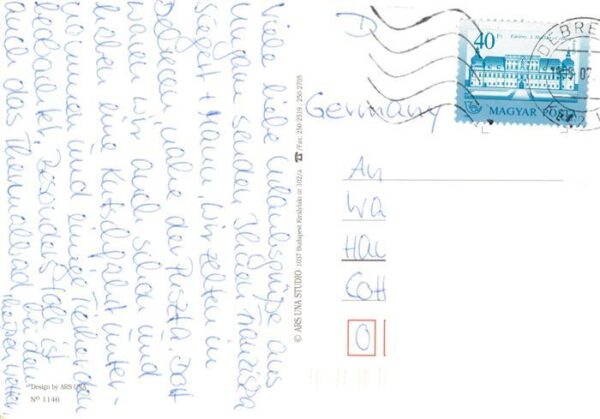 Viele liebe Urlaubsgrüße aus
Ungarn senden Ihnen Franziska
Siegert + Mann. Wir zelten in
Debrecen, nahe der Puszta. Dort
waren wir auch schon und
haben eine Kutschfahrt unter-
nommen und einige Tierherden
beobachtet. Besonders toll ist
auch das Thermalbad bei dem
heißen Wetter
Design by ARS UNA
Nº 1146
© ARS UNA STUDIO 1037 Budapest Királylaki út 102/a ☎/Fax: 250-2319 250-2705
D
Germany
40 Ft
MAGYAR POSTA
DEBRE
An
Wa
Hau
Cott
0